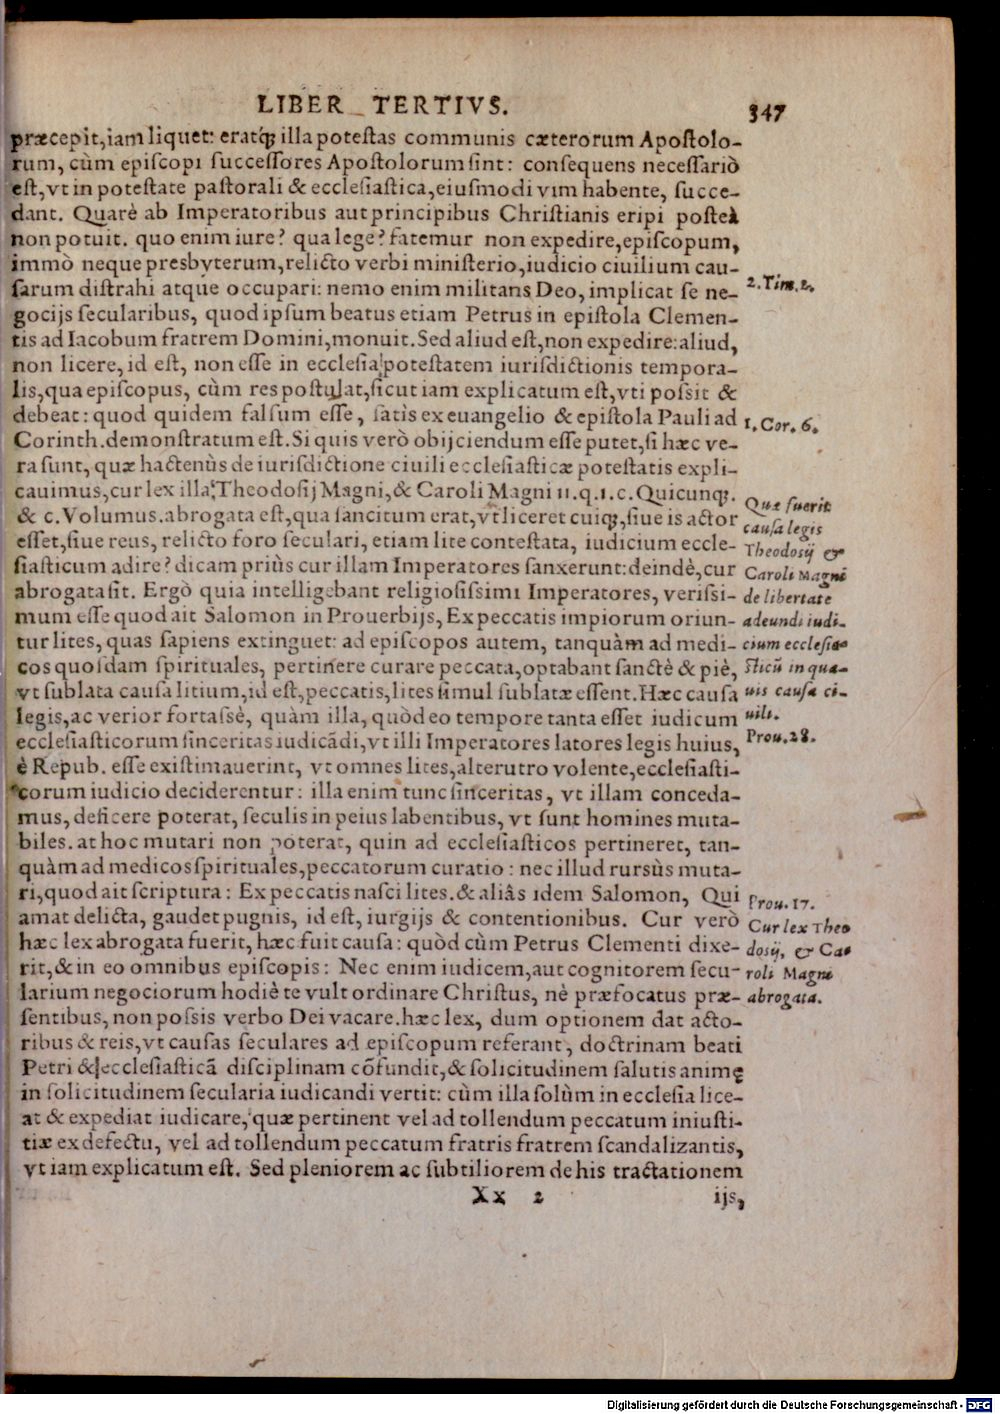 LIBER TERTIVS. 347
præcepit, iam liquet: eratq́; illa potestas communis cæterorum Apostolo-
rum, cùm episcopi successores Apostolorum sint: consequens necessariò
est, vt in potestate pastorali & ecclesiastica, eiusmodi vim habente, succe-
dant. Quarè ab Imperatoribus aut principibus Christianis eripi posteà
non potuit. quo enim iure? qua lege? fatemur non expedire, episcopum,
immò neque presbyterum, relicto verbi ministerio, iudicio ciuilium cau-
sarum distrahi atque occupari: nemo enim militans Deo, implicat se ne-
2. Tim. 2.
gocijs secularibus, quod ipsum beatus etiam Petrus in epistola Clemen-
tis ad Iacobum fratrem Domini, monuit. Sed aliud est, non expedire: aliud,
non licere, id est, non esse in ecclesia potestatem iurisdictionis tempora-
lis, qua episcopus, cùm res postulat, sicut iam explicatum est, vti possit &
debeat: quod quidem falsum esse, satis ex euangelio & epistola Pauli ad
1. Cor. 6.
Corinth. demonstratum est. Si quis verò obijciendum esse putet, si hæc ve-
ra sunt, quæ hactenùs de iurisdictione ciuili ecclesiasticæ potestatis expli-
cauimus, cur lex illa Theodosij Magni, & Caroli Magni 11. q. 1. c. Quicunq;.
& c. Volumus. abrogata est, qua sancitum erat, vt liceret cuiq;, siue is actor
esset, siue reus, relicto foro seculari, etiam lite contestata, iudicium eccle-
siasticum adire? dicam priùs cur illam Imperatores sanxerunt: deindè, cur
abrogata sit. Ergò quia intelligebant religiosissimi Imperatores, verissi-
mum esse quod ait Salomon in Prouerbijs, Ex peccatis impiorum oriun-
tur lites, quas sapiens extinguet: ad episcopos autem, tanquàm ad medi-
cos quosdam spirituales, pertinere curare peccata, optabant sanctè & piè,
vt sublata causa litium, id est, peccatis, lites simul sublatæ essent. Hæc causa
legis, ac verior fortassè, quàm illa, quòd eo tempore tanta esset iudicum
Quæ fuerit
causa legis
Theodosij &
Caroli Magni
de libertate
adeundi iudi-
cium ecclesia-
sticũ in qua-
uis causa ci-
uili.
Prou. 28.
ecclesiasticorum sinceritas iudicãdi, vt illi Imperatores latores legis huius,
è Repub. esse existimauerint, vt omnes lites, alterutro volente, ecclesiasti-
corum iudicio deciderentur: illa enim tunc sinceritas, vt illam conceda-
mus, deficere poterat, seculis in peius labentibus, vt sunt homines muta-
biles. at hoc mutari non poterat, quin ad ecclesiasticos pertineret, tan-
quàm ad medicos spirituales, peccatorum curatio: nec illud rursùs muta-
ri, quod ait scriptura: Ex peccatis nasci lites. & aliâs idem Salomon, Qui
Prou. 17.
amat delicta, gaudet pugnis, id est, iurgijs & contentionibus. Cur verò
hæc lex abrogata fuerit, hæc fuit causa: quòd cùm Petrus Clementi dixe-
rit, & in eo omnibus episcopis: Nec enim iudicem, aut cognitorem secu-
larium negociorum hodiè te vult ordinare Christus, nè præfocatus præ-
Cur lex Theo
dosij, & Ca-
roli Magni
abrogata.
sentibus, non possis verbo Dei vacare. hæc lex, dum optionem dat acto-
ribus & reis, vt causas seculares ad episcopum referant, doctrinam beati
Petri & ecclesiasticã disciplinam cõfundit, & solicitudinem salutis animę
in solicitudinem secularia iudicandi vertit: cùm illa solùm in ecclesia lice-
at & expediat iudicare, quæ pertinent vel ad tollendum peccatum iniusti-
tiæ ex defectu, vel ad tollendum peccatum fratris fratrem scandalizantis,
vt iam explicatum est. Sed pleniorem ac subtiliorem de his tractationem
Xx 2 ijs,
Digitalisierung gefördert durch die Deutsche Forschungsgemeinschaft - DFG